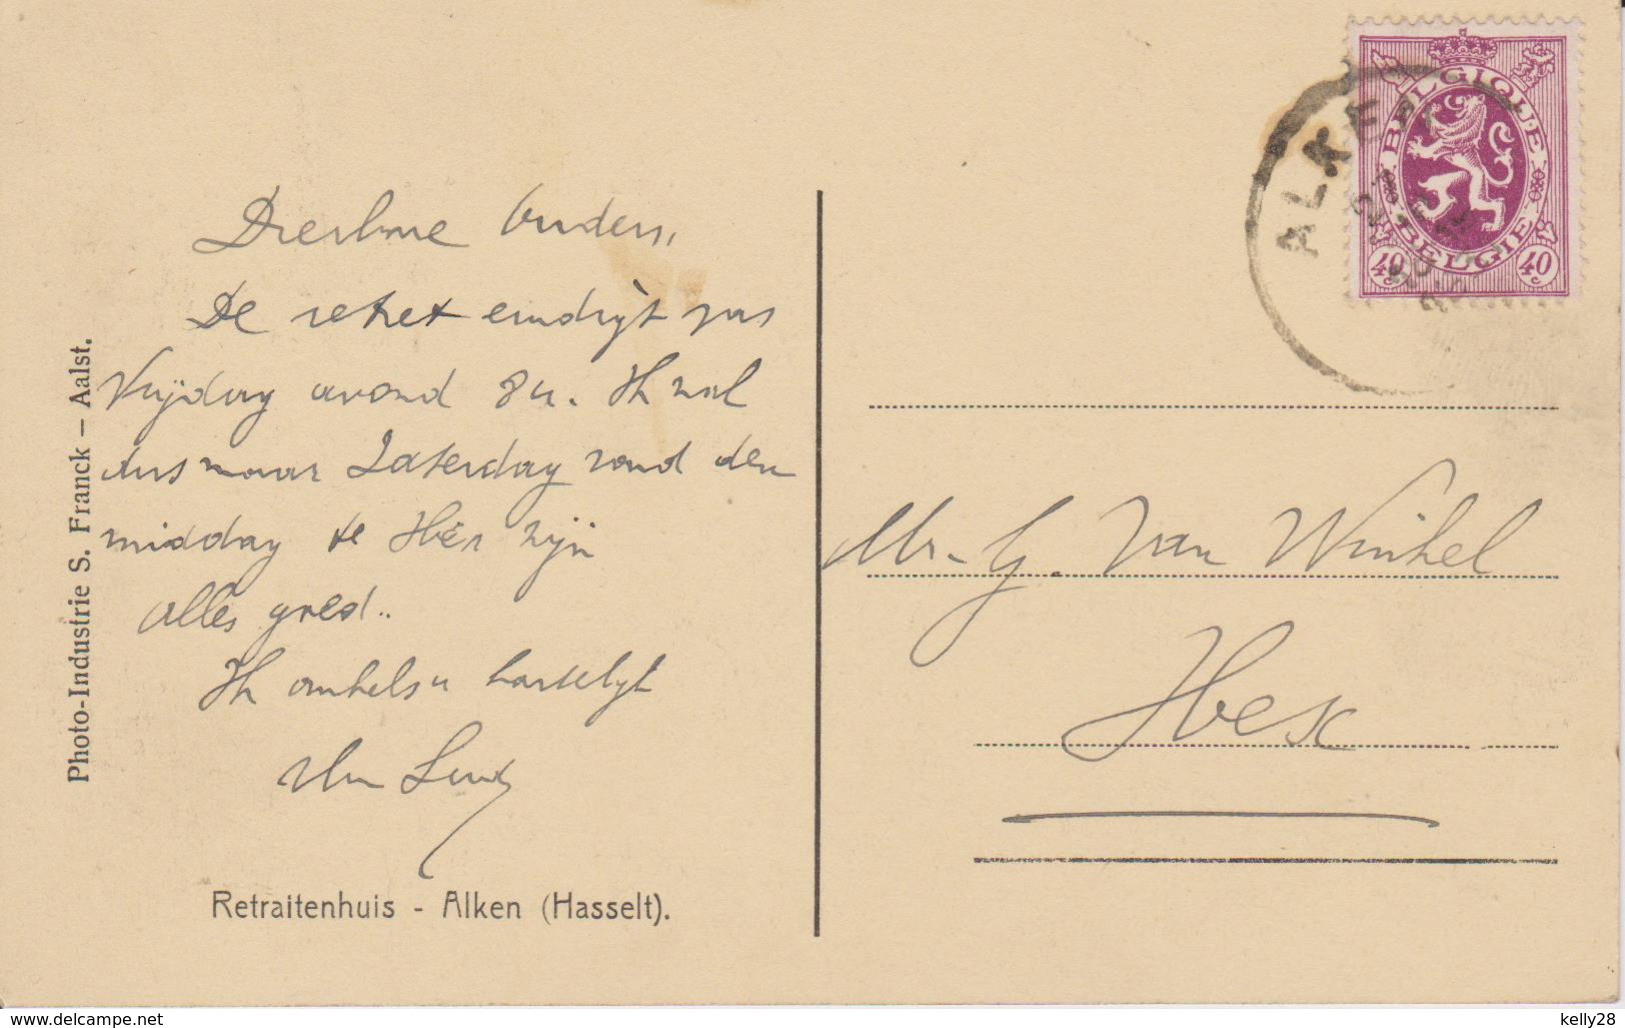 Dierbare Ouders,
De retret eindigt pas
Vrijdag avond 8 u. Ik zal
dus maar Zaterdag rond den
middag te Hex zijn
alles goed..
Ik omhels u hartelijk
Retraitenhuis - Alken (Hasselt).
Photo-Industrie S. Franck – Aalst.
BELGIQUE
BELGIË
40 c 40 c
ALKEN
Mr. G. Van Winkel
Hex
www.delcampe.net
kelly28